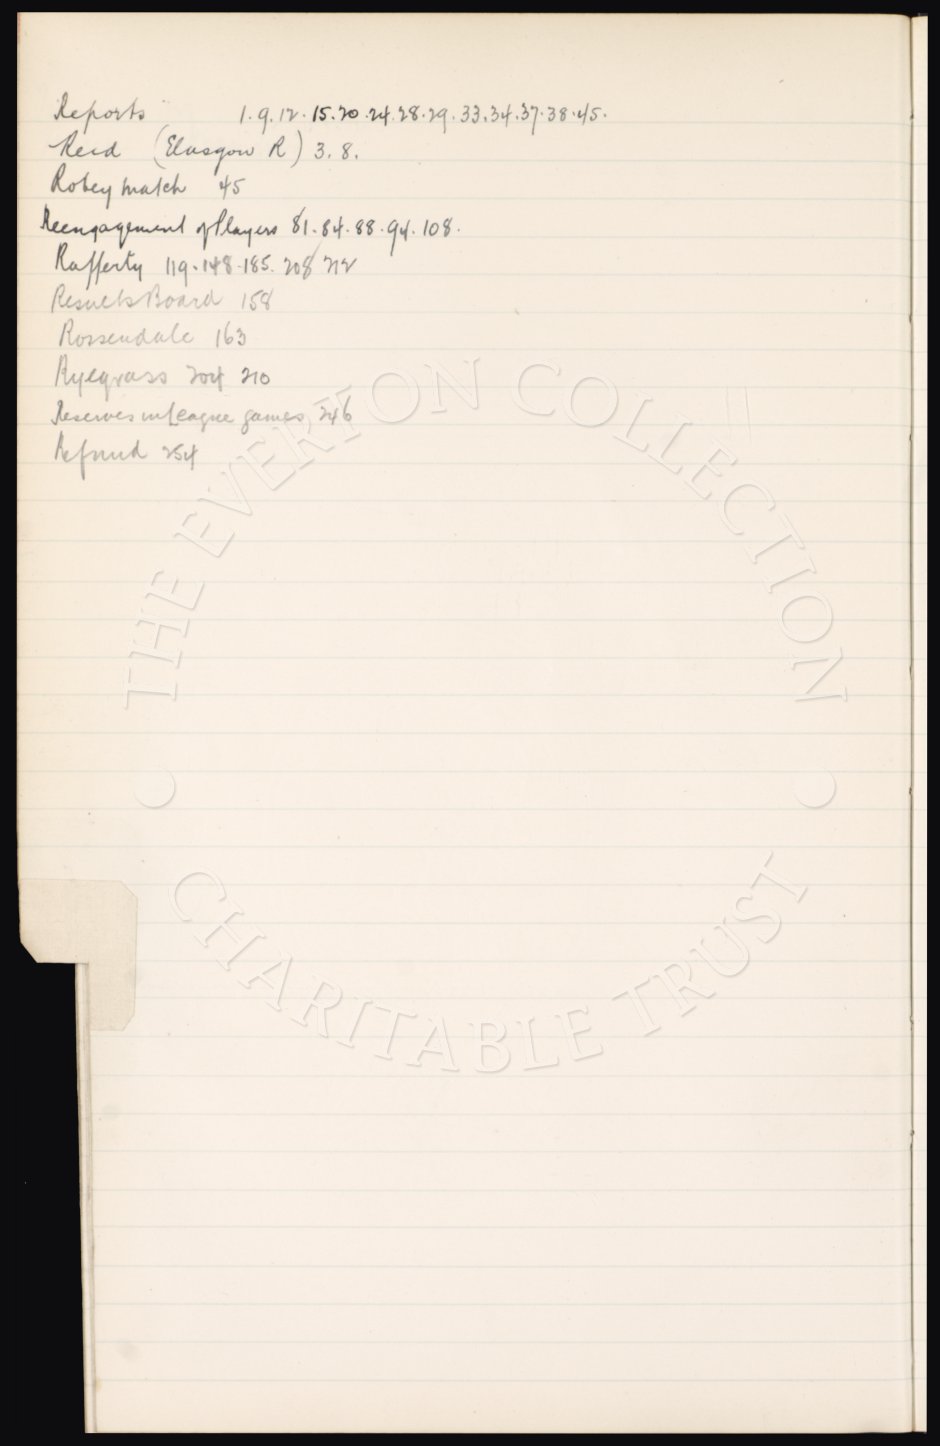 Reports 1. 9. 12. 15. 20. 24. 28. 29. 33. 34. 37. 38. 45.
Reid (Glasgow R) 3. 8.
Robey match 45
Reengagement of Players 81. 84. 88. 94. 108.
Rafferty 119. 148. 185. 208 212
Results Board 158
Rossendale 163
Ryegrass 204 210
Reserves in League games 246
Refund 254
THE EVERTON COLLECTION
CHARITABLE TRUST